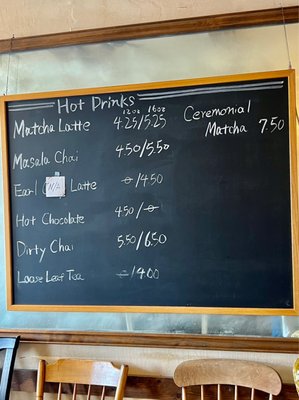 Hot Drinks
12oz 16oz
Matcha Latte 4.25/5.25
Masala Chai 4.50/5.50
Earl Latte -o-/4.50
Hot Chocolate 4.50/-o-
Dirty Chai 5.50/6.50
Loose Leaf Tea -/4.00
Ceremonial
Matcha 7.50